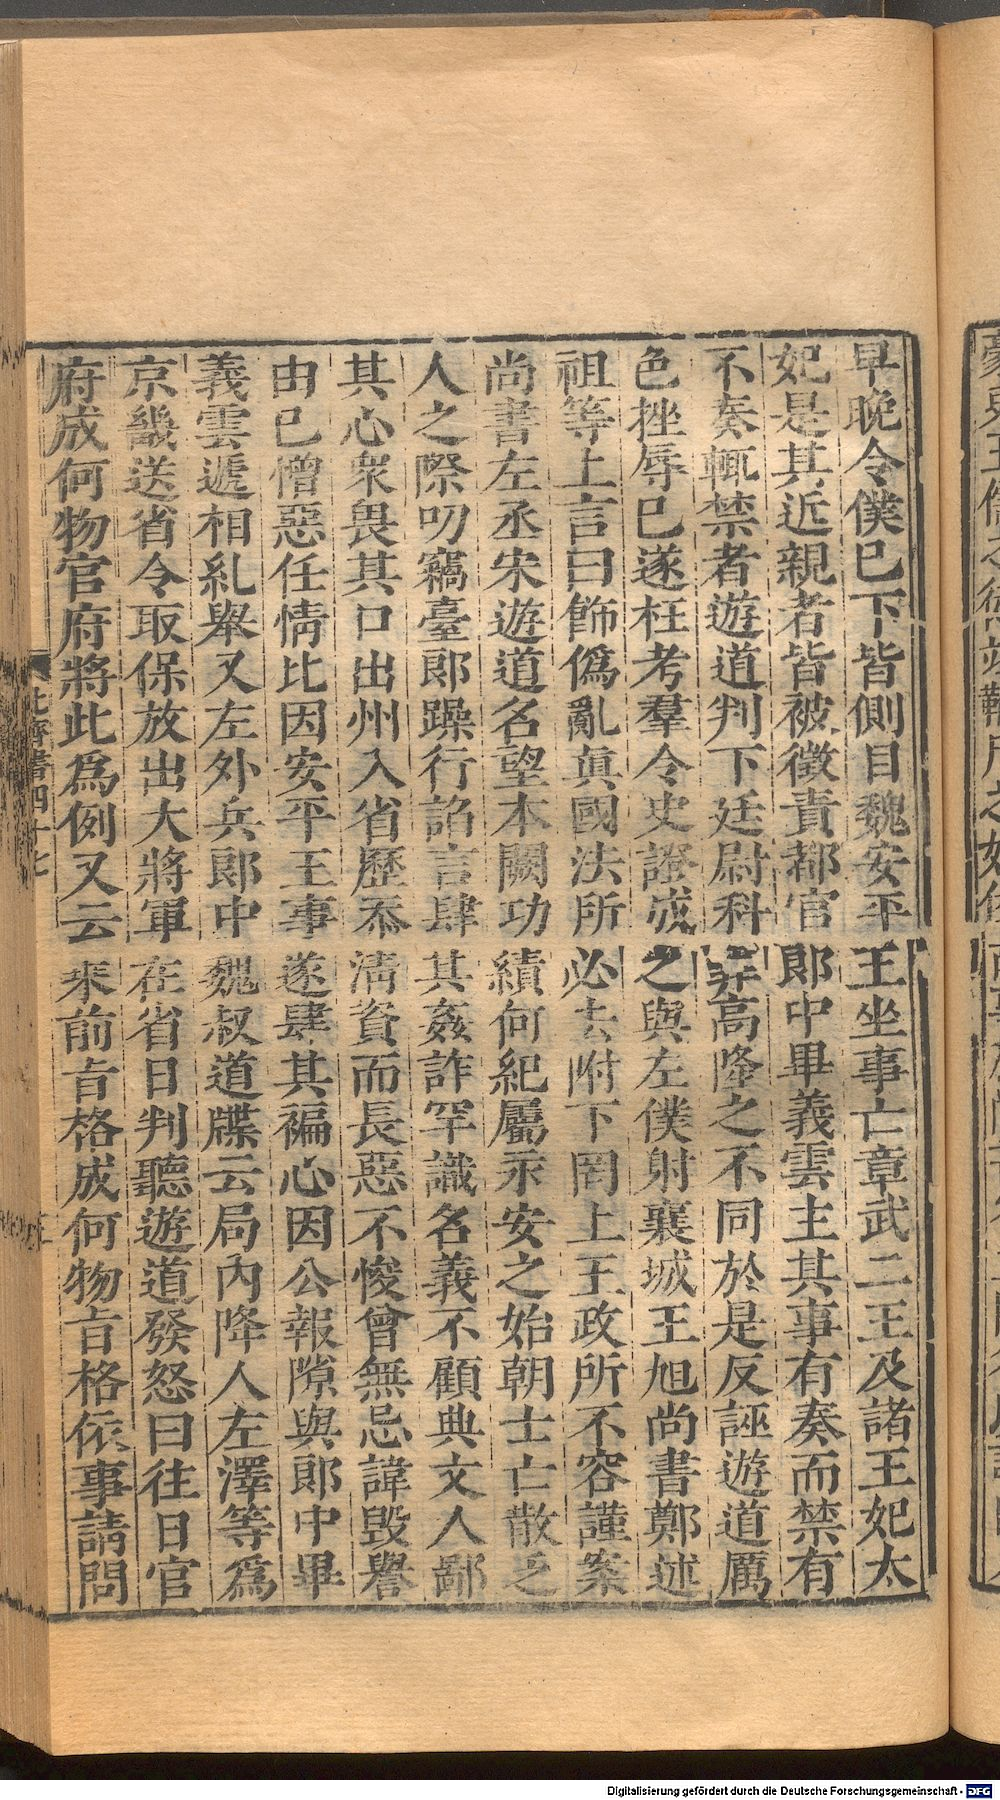 早晚令僕已下皆側目魏安平王坐事亡章武二王及諸王妃太
妃是其近親者皆被徵責都官郎中畢義雲主其事有奏而禁有
不奏輒禁者遊道判下廷尉科罪高隆之不同於是反誣遊道厲
色挫辱已遂枉考羣令史證成之與左僕射襄城王旭尚書鄭述
祖等上言曰飾僞亂眞國法所必去附下罔上王政所不容謹案
尚書左丞宋遊道名望本闕功績何紀屬永安之始朝士亡散乏
人之際叨竊臺郎躁行諂言肆其姦詐罕識名義不顧典文人鄙
其心衆畏其口出州入省歷忝淸資而長惡不悛曾無忌諱毁譽
由已憎惡任情比因安平王事遂肆其褊心因公報隙與郎中畢
義雲遞相糺舉又左外兵郎中魏叔道牒云局內降人左澤等爲
京畿送省令取保放出大將軍在省日判聽遊道發怒曰往日官
府成何物官府將此爲例又云乘前旨格成何物旨格依事請問
北齊書四十七
Digitalisierung gefördert durch die Deutsche Forschungsgemeinschaft - DFG